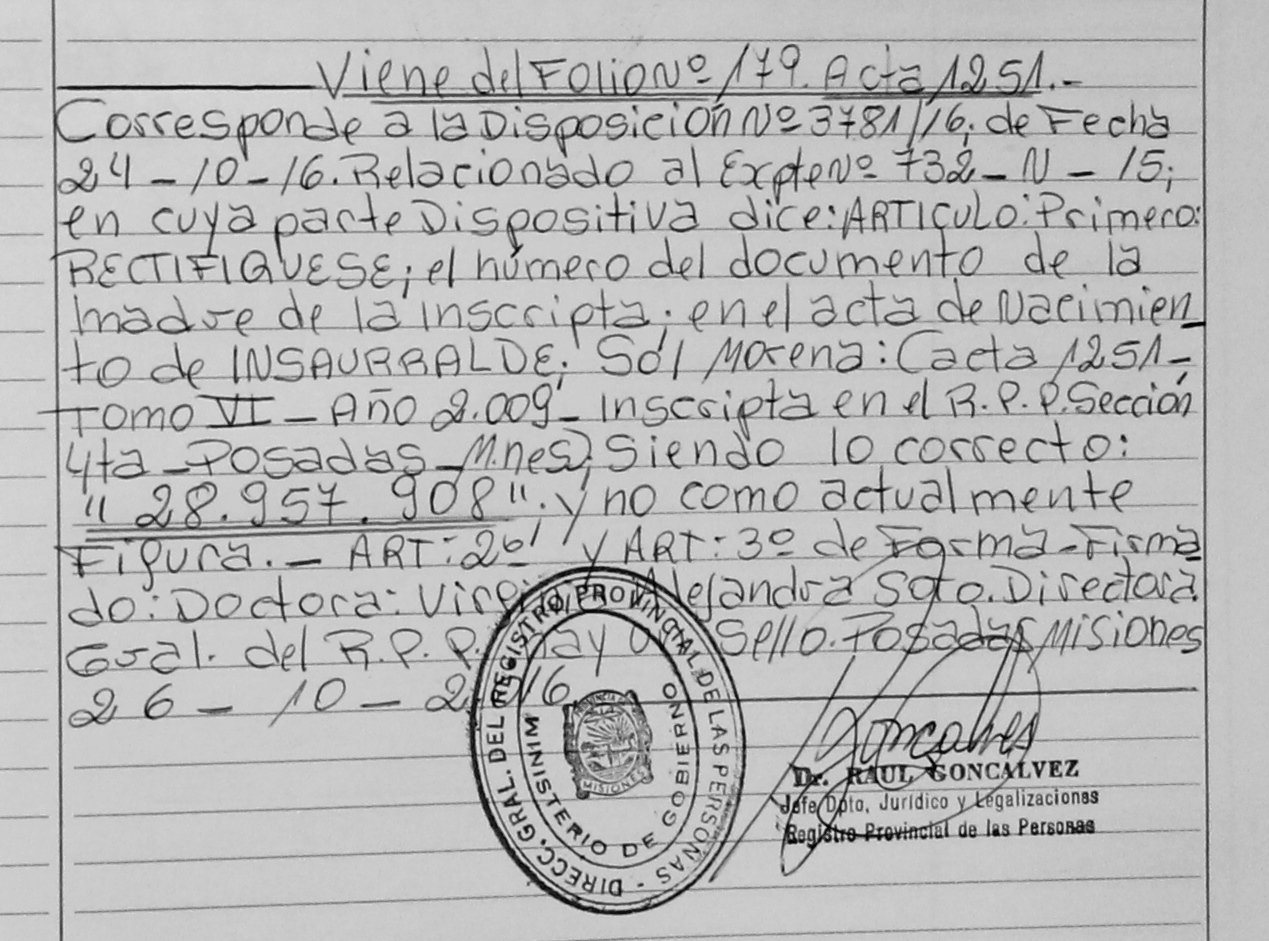 Viene del Folio Nº 179. Acta 1251.-
Corresponde a la Disposición Nº 3781/16; de Fecha
24-10-16. Relacionado al Expte Nº 732-N-15;
en cuya parte Dispositiva dice: ARTICULO: Primero:
RECTIFIQUESE; el número del documento de la
madre de la inscripta; en el acta de Nacimien
to de INSAURRALDE; Sol Morena: (acta 1251-
Tomo VI - Año 2.009- Inscripta en el R.P.P. Sección
4ta - Posadas - Mnes); Siendo lo correcto:
"28.957.908"; y no como actualmente
Figura.- ART: 2º y ART: 3º de Forma - Firma
do: Doctora: Alejandra Soto. Directora
Gral. del R.P.P. hay Sello. Posadas Misiones
26-10-2016
DIRECC. GRAL. DEL REGISTRO PROVINCIAL DE LAS PERSONAS -
MINISTERIO DE GOBIERNO
PROVINCIA DE
MISIONES
Goncalves
Dr. RAUL GONCALVEZ
Jefe Dpto. Jurídico y Legalizaciones
Registro Provincial de las Personas